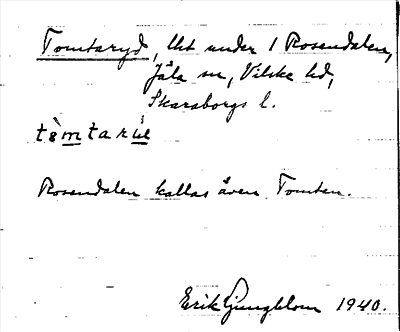 Tomtaryd, lht under 1 Rosendalen,
Jäla sn, Vilske hd,
Skaraborgs l.
Rosendalen kallas även Tomten.
Erik Ljungblom 1940.